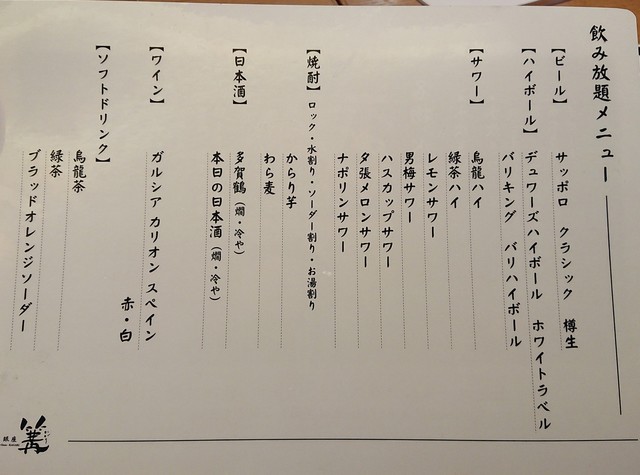 飲み放題メニュー
【ビール】
サッポロ クラシック 樽生
【ハイボール】
デュワーズハイボール ホワイトラベル
バリキング バリハイボール
【サワー】
烏龍ハイ
緑茶ハイ
レモンサワー
男梅サワー
ハスカップサワー
夕張メロンサワー
ナポリンサワー
【焼酎】ロック・水割り・ソーダー割り・お湯割り
からり芋
わら麦
【日本酒】
多賀鶴(燗・冷や)
本日の日本酒(燗・冷や)
【ワイン】
ガルシア カリオン スペイン
赤・白
【ソフトドリンク】
烏龍茶
緑茶
ブラッドオレンジソーダー
銀座
篝